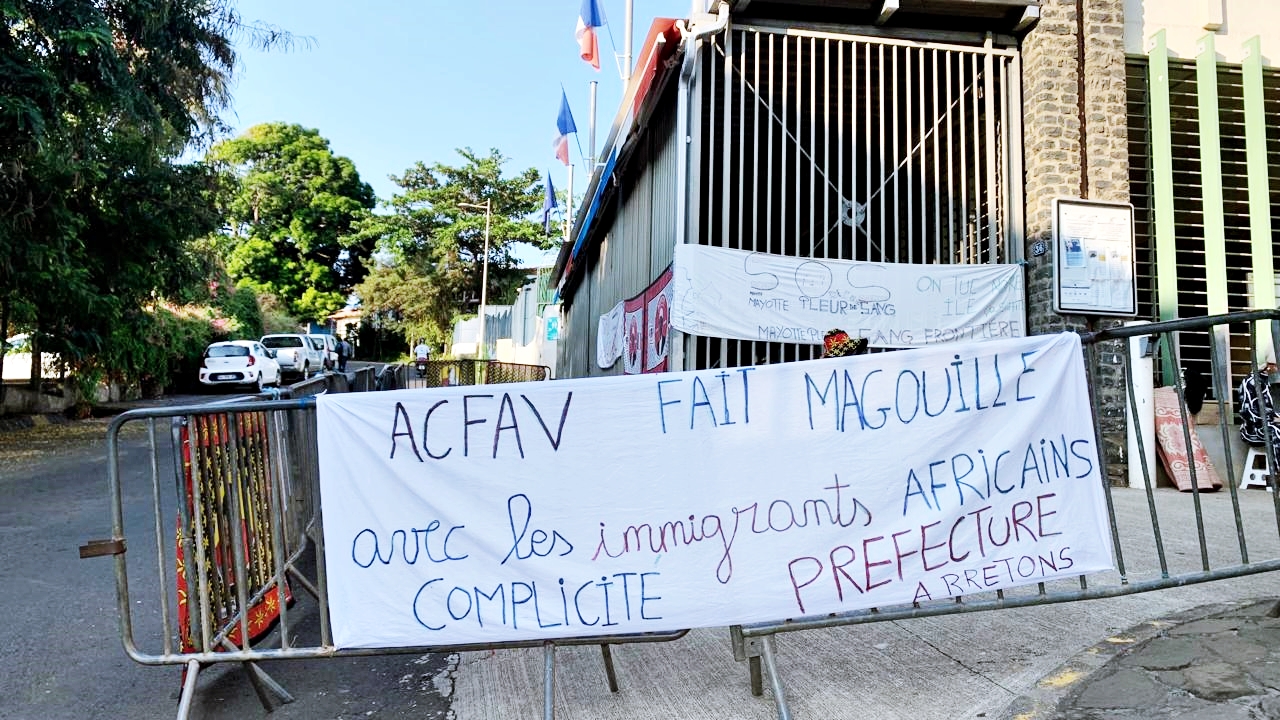 SOS
MAYOTTE PLEUR DE SANG
ON TUE
ÎLE
MAYOTTE SANG FRONTIÈRE
ACFAV FAIT MAGOUILLE
avec les immigrants AFRICAINS
COMPLICITÉ PREFECTURE
ARRETONS